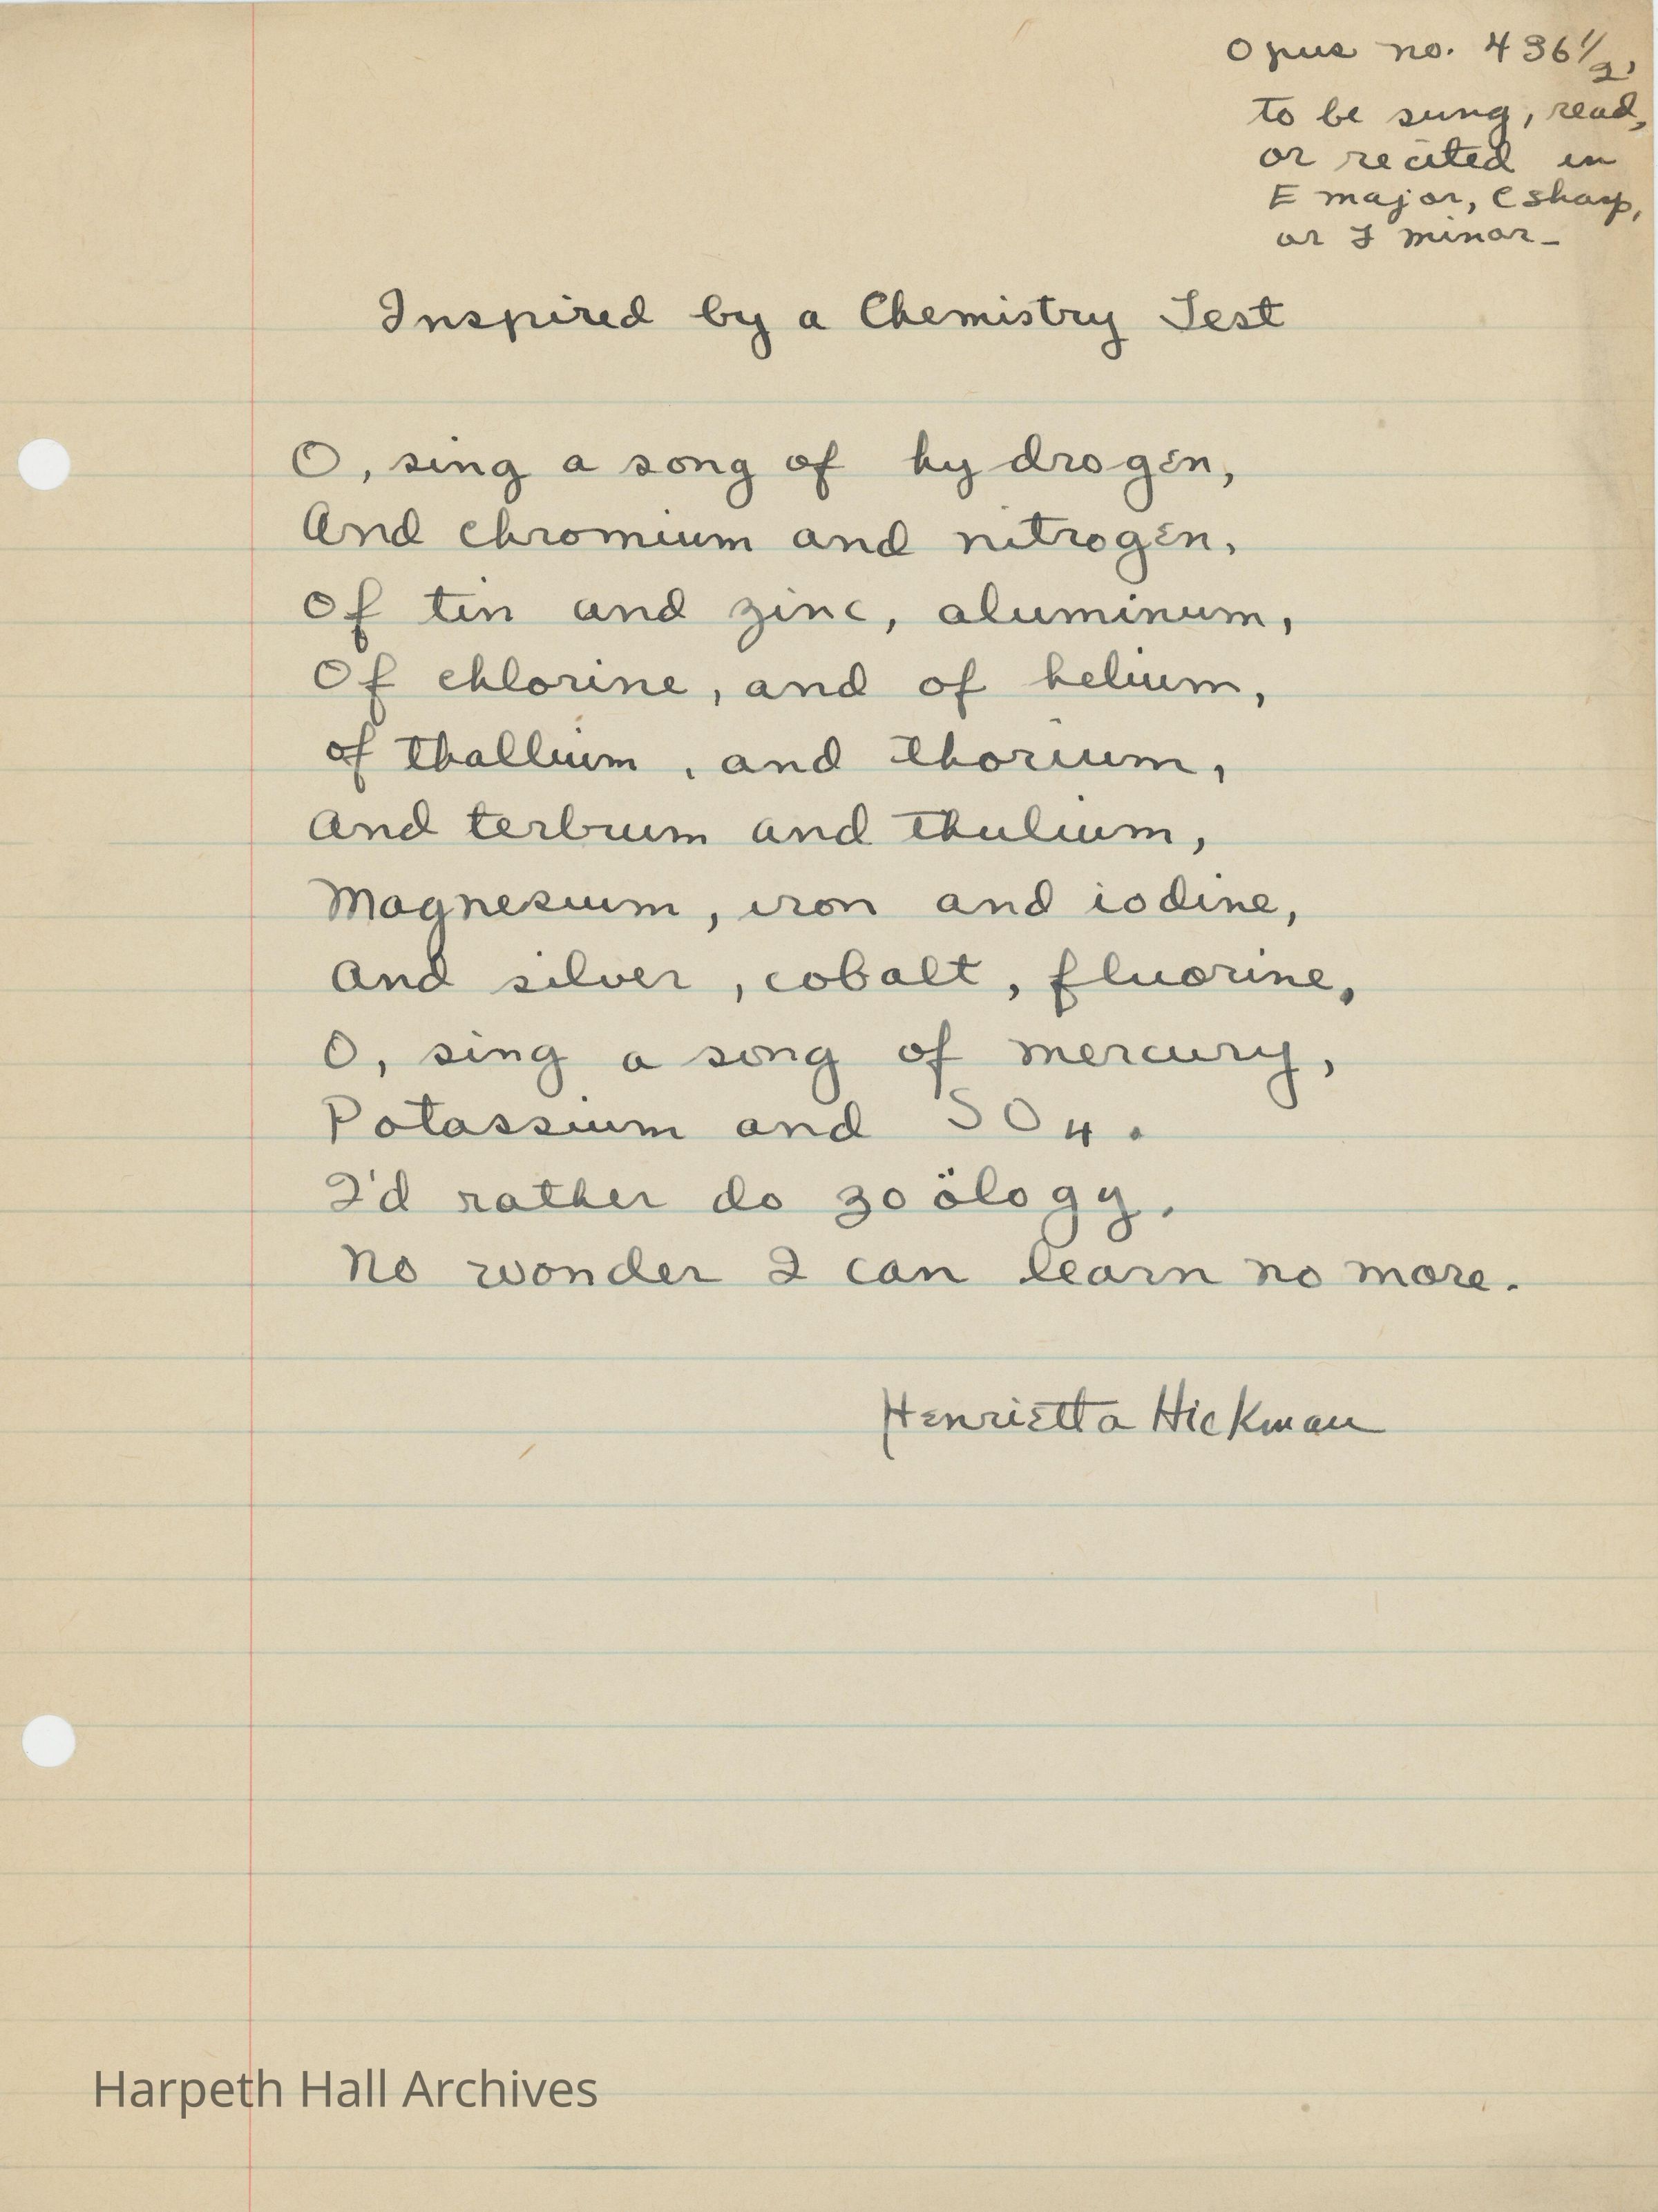 Opus no. 436 1/2,
to be sung, read,
or recited in
E major, C sharp,
or F minor-
Inspired by a Chemistry Test
O, sing a song of hydrogen,
And chromium and nitrogen,
Of tin and zinc, aluminum,
Of chlorine, and of helium,
Of thallium, and thorium,
And terbium and thulium,
Magnesium, iron and iodine,
And silver, cobalt, fluorine,
O, sing a song of mercury,
Potassium and SO4.
I'd rather do zoölogy.
No wonder I can learn no more.
Henrietta Hickman
Harpeth Hall Archives